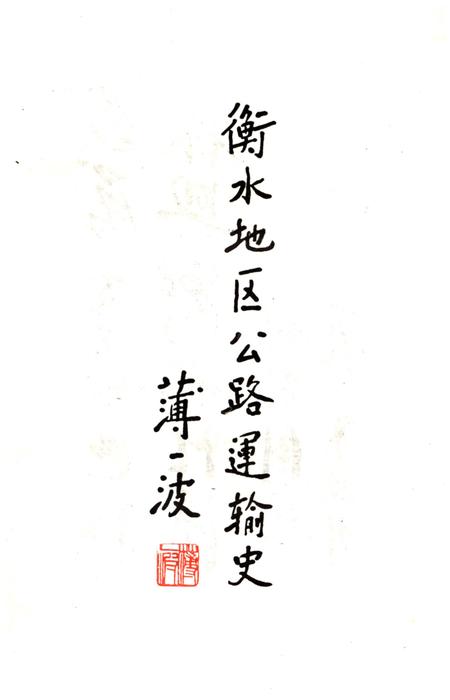 衡水地区公路運输史
薄一波